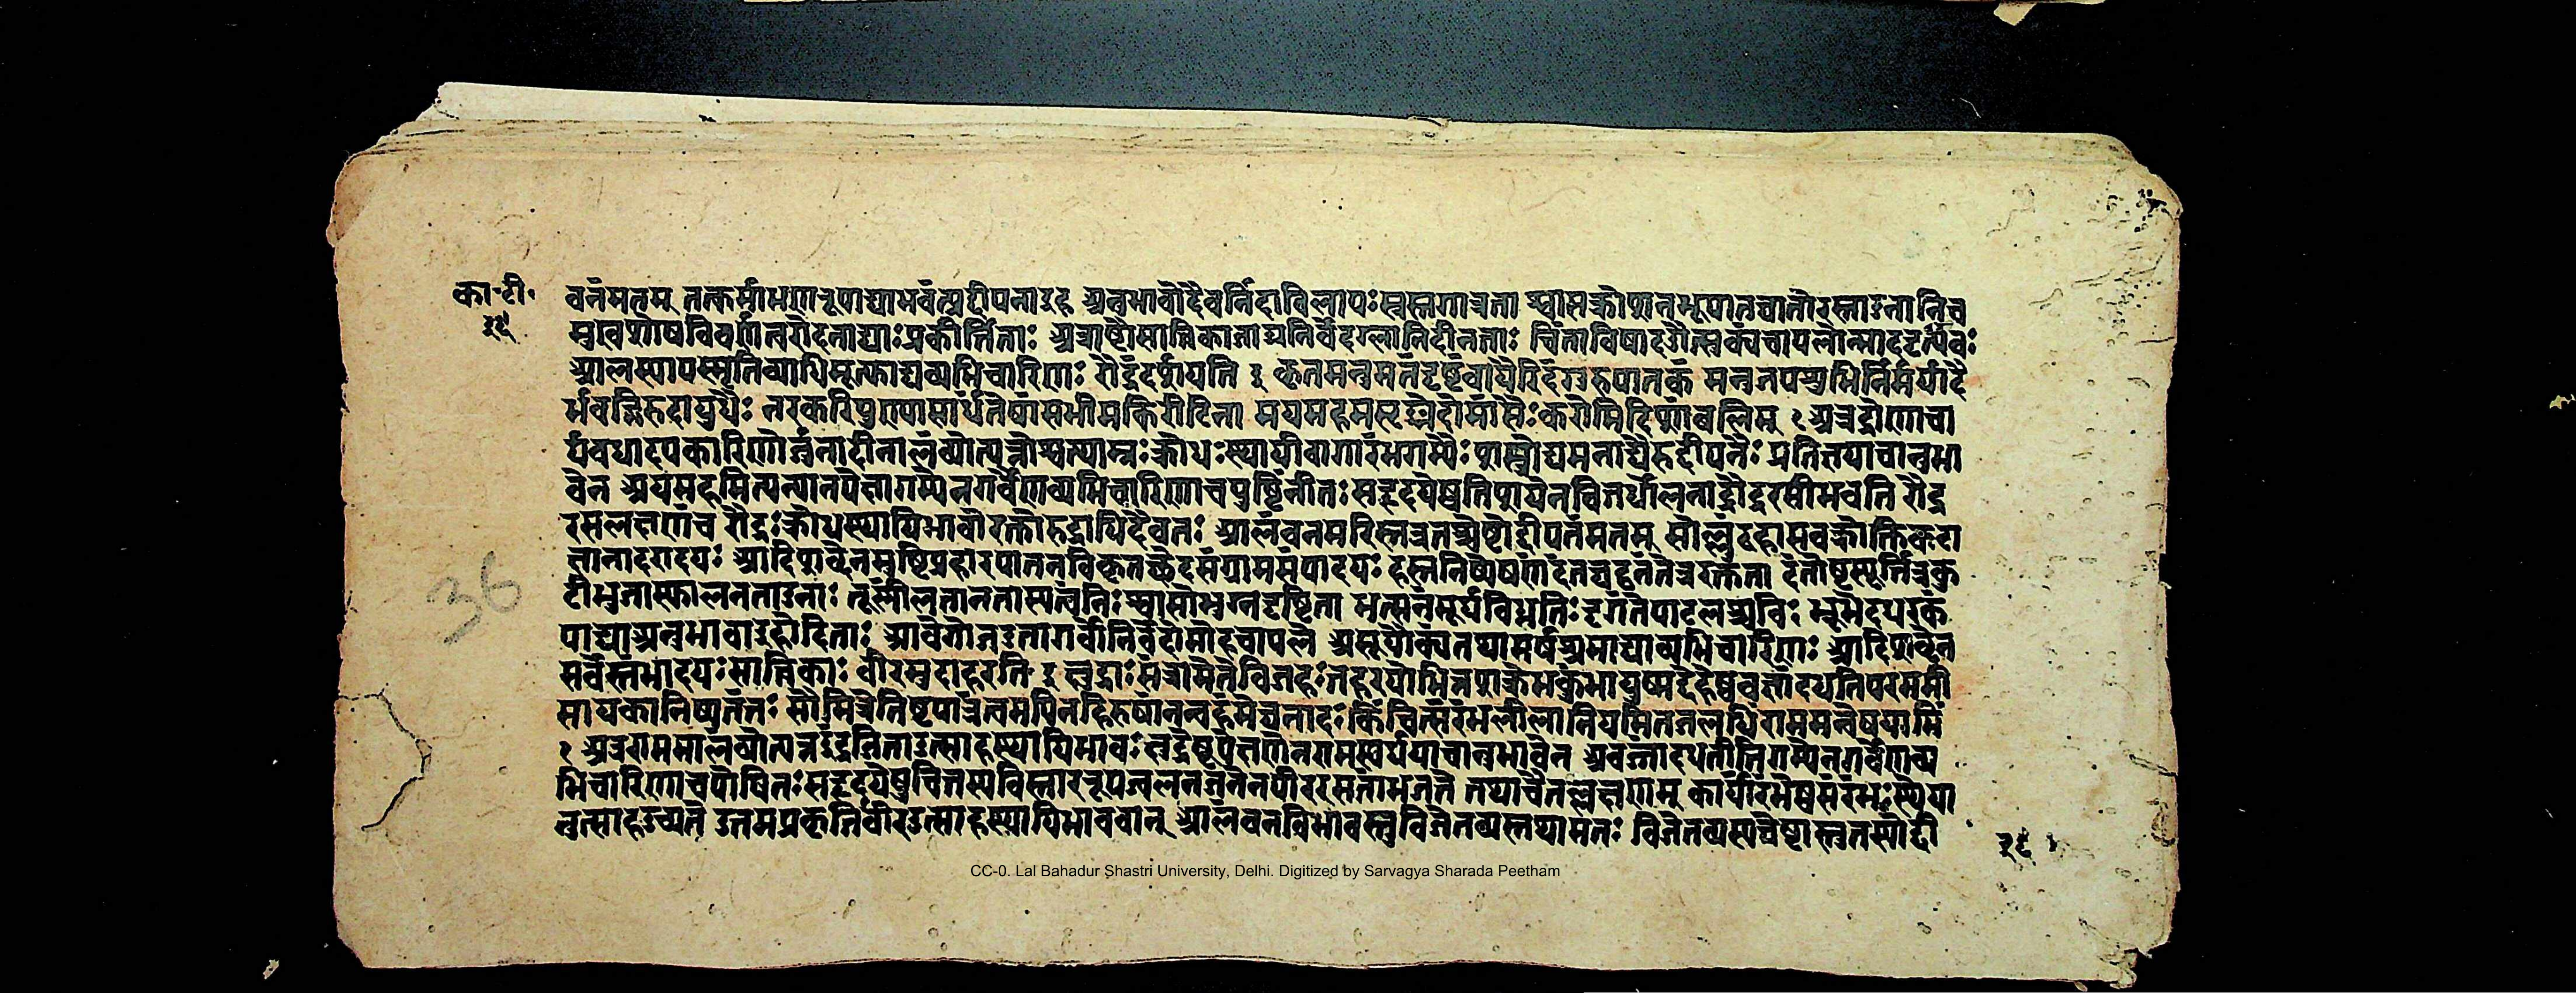 का॰टी॰
वनंमतम् तत्कर्मांभगारूपाद्याभवंत्युद्दीपनाइह अनुभावोदैवनिंदाविलापःस्वस्तगात्रता श्वासक्रोशनभूपातघातोरस्ताडनानिच
मुखशोषविवर्णत्वरोदनाद्याःप्रकीर्त्तिताः अत्राष्टौसात्त्विकाजाड्यनिर्वेदग्लानिदीनताः चिंताविषादऔत्सुक्यंचापलोन्मादमृत्यवः
आलस्यापस्मृतिव्याधिमूर्छाद्यव्यभिचारिणः रौद्रंदर्शयति इ कृतमनुमतंदृष्टंवायैरिदंगुरुपातकं मनुजपशुभिर्निर्मर्यादै
र्भवद्भिरुदायुधैः नरकरिपुणासार्धंतेषांसभीमकिरीटिना मयमहमसृङ्मेदोमांसैःकरोमिदिशांबलिम् १ अत्रद्रोणाचा
र्यवधादपकारिणोर्जुनादीनालंब्योत्पन्नोश्वत्थाम्नःक्रोधःस्थायीवागारंभगम्यैःशस्त्रोद्यमनाद्यैरुद्दीपनैः प्रतिज्ञयाचानुभा
वेन अयमहमित्यन्यानपेक्षागम्येनगर्वेणव्यभिचारिणाचपुष्टिंनीतःसहृदयेषुप्रतिशयेनविगर्थोलनाद्रौद्ररसीभवति रौद्र
रसलक्षणंच रौद्रःक्रोधस्थायिभावोरक्तोरुद्राधिदैवतः आलंबनमरिस्तत्रतच्चेष्टोद्दीपनंमतम् सोल्लुंठहासवक्रोक्तिकटा
क्षानादरादयः आदिशब्देनमुष्टिप्रहारपातनविकृतच्छेदसंग्रामसंपादयः हस्तनिष्पेषणंदंतघट्टनंनेत्ररक्तता दंतोष्ठस्फूर्त्तिभ्रुकु
टीभुजास्फालनताडनाः तूष्णीलतानतास्यत्वंनिःश्वासोभुग्नदृष्टिता भर्त्सनंमूर्धविधुतिःदृगंतेपाटलच्छविः भ्रूभेदपरुकं
पाद्याअनुभावाइहोदिताः आवेगोजडतागर्वोनिर्वेदोमोहचापले असूयौत्क्यंतथामर्षश्रमाद्याव्यभिचारिणः आदिशब्देन
सर्वेस्तंभादयःसात्त्विकाः वीरमुदाहरति इ क्षुद्राःसंत्रासमेतेविजहतहरयोभिन्नशक्रेभकुंभायुष्मद्देहेषुलज्जांदधतिपरममी
सायकानिष्पतंतः सौमित्रेतिष्ठपात्रंत्वमपिनहिरुषांनन्वहंमेघनादःकिंचित्संरंभलीलानियमितजलधिंराममन्वेषयामि
१ अत्रराममालंब्योत्पन्नइंद्रजितउत्साहःस्थायिभावः क्षुद्रेषूपेक्षणेनरामस्पर्धयाचानुभावेन अवज्ञादधतीतिगम्येनगर्वेणव्य
भिचारिणाचपोषितःसहृदयेषुचित्तस्यविस्ताररूपज्वलनजनेनवीररसतांभजते तथाचैतल्लक्षणम् कार्यारंभेषुसंरंभःस्थेया
नुत्साहउच्यते उत्तमप्रकृतिर्वीरउत्साहस्थायिभाववान् आलंबनविभावस्तुविजेतव्यस्तथामतः विजेतव्यस्यचेष्टास्तुतस्योद्दी
36
CC-0. Lal Bahadur Shastri University, Delhi. Digitized by Sarvagya Sharada Peetham